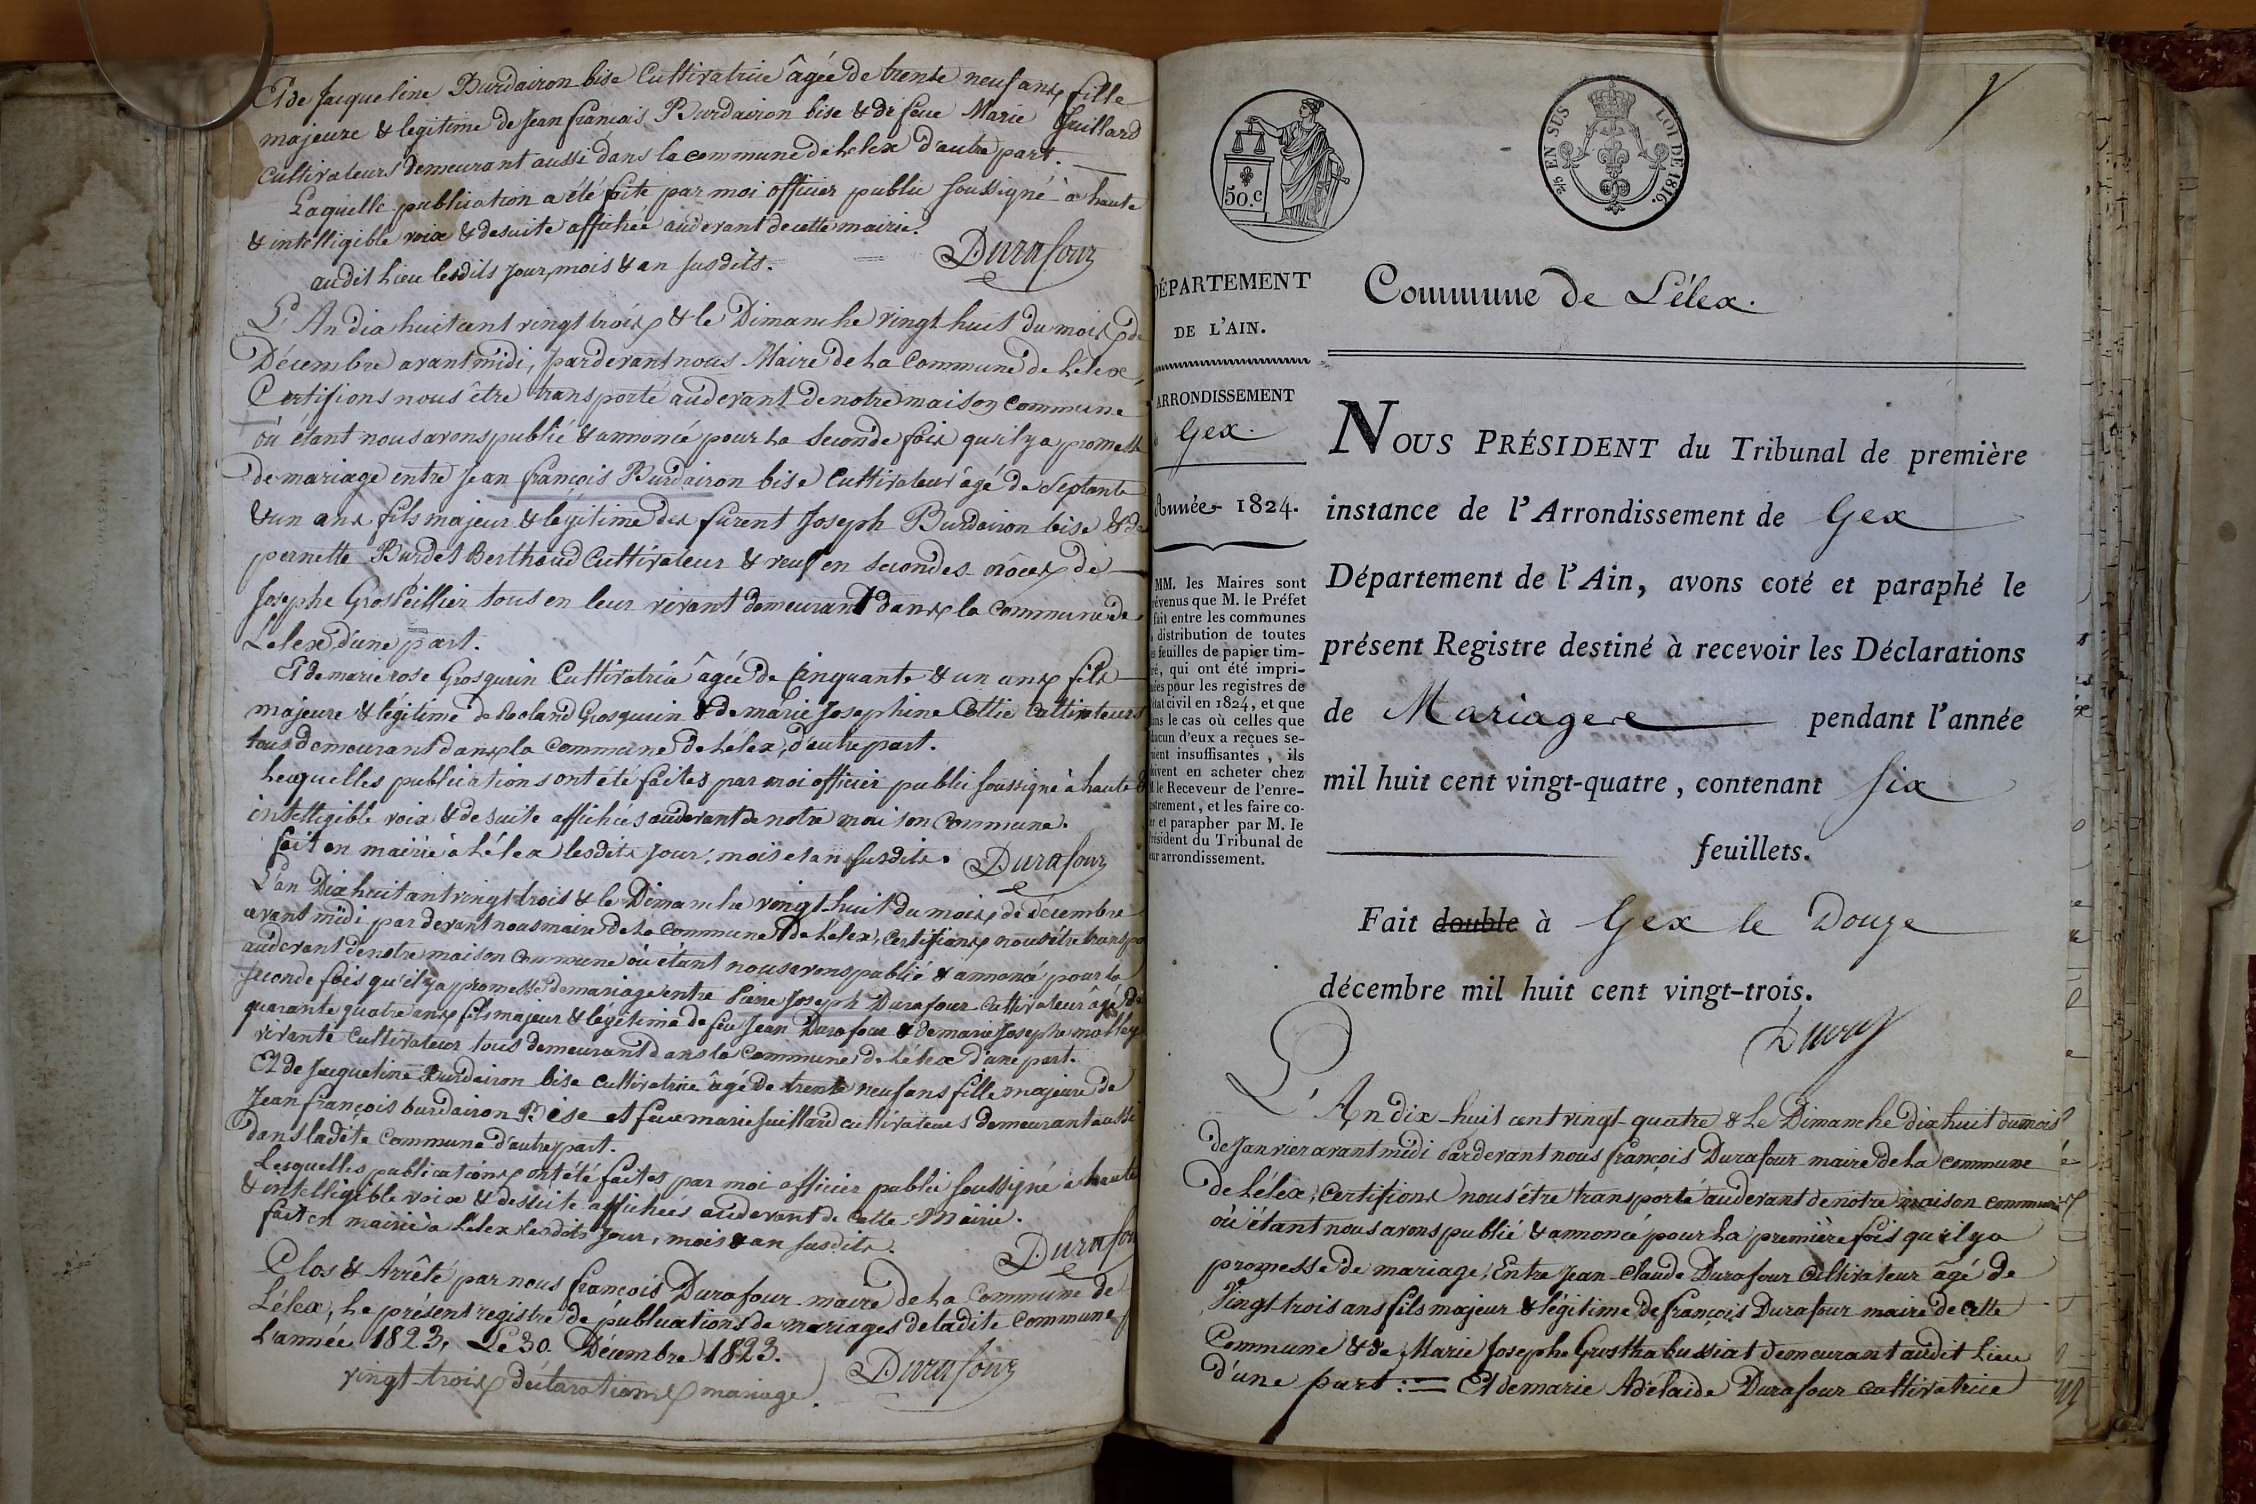 Et de Jacqueline Burdairon bise Cultivatrice âgée de trente neuf ans fille
majeure & legitime de Jean francois Burdairon bise & de feue Marie Juillard
cultivateurs demeurant aussi dans la commune de Lelex d'autre part.
Laquelle publication a été faite par moi officier public soussigné à haute
& intelligible voix & desuite affichée audevant de cette mairie.
audit Lieu lesdits jour, mois & an susdits.
Durafour
L'An dix huit cent vingt trois & le Dimanche vingt huit du mois de
Décembre avant midi, pardevant nous Maire de la Commune de Lélex,
Certifions nous être transporté audevant de notre maison commune
où étant nous avons publié & annoncé pour la Seconde fois qu'il y a promesse
de mariage entre Jean françois Burdairon bise Cultivateur âgé de Septante
& un ans fils majeur & légitime des furent Joseph Burdairon bise & de
pernette Burdet Berthoud Cultivateur & veuf en secondes nôces de
Josephe Grospeillier tous en leur vivant demeurant dans la commune de
Lelex d'une part.
Et de marie rose Grosgurin Cultivatrice âgée de Cinquante & un ans fille
majeure & légitime de Roland Grosgurin & de marie Josephine Cottie Cultivateurs
tous demeurant dans la commune de Lelex, d'autre part.
Lesquelles publications ont été faites par moi officier public soussigné à haute &
intelligible voix & de suite affichées audevant de notre maison commune.
fait en mairie à Lélex lesdits jour, mois et an susdits. Durafour
L'an Dix huit cent vingt trois & le Dimanche vingt-huit du mois de décembre
avant midi par devant nous maire de la commune de Lélex, certifions nous être transpo
audevant de notre maison commune où étant nous avons publié & annoncé pour la
seconde fois qu'il y a promesse de mariage entre Pierre Joseph Durafour cultivateur âgé de
quarante quatre ans fils majeur & légitime de feu Jean Durafour & de marie Josephe
vivante cultivateur tous demeurant dans la commune de Lélex d'une part.
Et de Jacqueline Burdairon bise cultivatrice âgé de trente neuf ans fille majeure de
Jean françois burdairon Bise et feue marie Juillard cultivateurs demeurant aussi
dans ladite commune d'autre part.
Lesquelles publications ont été faites par moi officier public soussigné à haute
& intelligible voix & desuite affichées audevant de cette Mairie.
fait en mairie à Lelex lesdits jour, mois & an susdits.
Durafour
Clos & Arrêté par nous françois Durafour maire de la Commune de
Lélex, le présent registre de publications de mariages de ladite commune
L'année 1823, Le 30 Décembre 1823.
vingt-trois déclarations mariage. Durafour
50.C
EN SUS
LOI DE 1816.
DÉPARTEMENT
DE L'AIN.
ARRONDISSEMENT
Gex.
Année 1824.
MM. les Maires sont
prévenus que M. le Préfet
fait entre les communes
distribution de toutes
feuilles de papier tim-
bré, qui ont été impri-
mées pour les registres de
l'état civil en 1824, et que
dans le cas où celles que
chacun d'eux a reçues se-
roient insuffisantes, ils
doivent en acheter chez
M. le Receveur de l'enre-
gistrement, et les faire co-
ter et parapher par M. le
Président du Tribunal de
leur arrondissement.
Commune de Lélex.
NOUS PRÉSIDENT du Tribunal de première
instance de l'Arrondissement de Gex
Département de l'Ain, avons coté et paraphé le
présent Registre destiné à recevoir les Déclarations
de Mariages pendant l'année
mil huit cent vingt-quatre, contenant six
feuillets.
Fait double à Gex le Douze
décembre mil huit cent vingt-trois.
L'An dix-huit cent vingt-quatre & Le Dimanche dix huit du mois
de Janvier avant midi Pardevant nous françois Durafour maire de la commune
de Lélex, certifions nous être transporté audevant de notre maison commune
où étant nous avons publié & annoncé pour la première fois qu'il y a
promesse de mariage, Entre Jean-Claude Durafour Cultivateur âgé de
vingt trois ans fils majeur & légitime de françois Durafour maire de cette
Commune & de Marie Josephe Grosthabussiat demeurant audit Lieu
d'une part := Et de marie Adélaide Durafour cultivatrice